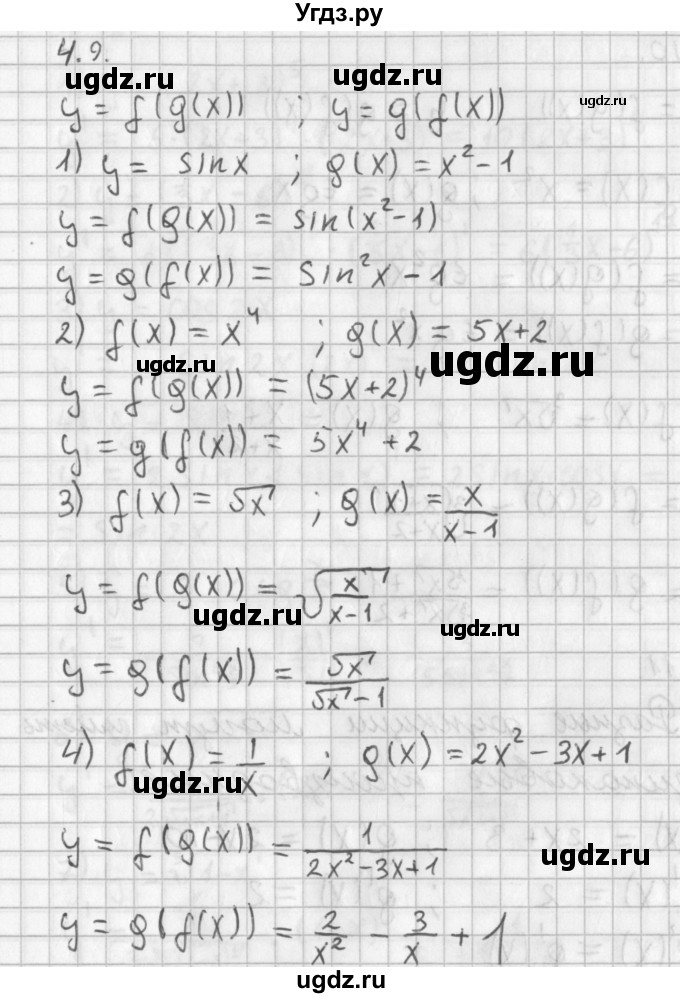 Угдз.ру
4.9.
ugdz.ru
ugdz.ru
y = f(g(x)) ; y = g(f(x))
1) y = sin x ; g(x) = x² - 1
y = f(g(x)) = sin(x² - 1)
y = g(f(x)) = sin²x - 1
2) f(x) = x⁴ ; g(x) = 5x + 2
ugdz.ru
ugdz.ru
y = f(g(x)) = (5x + 2)⁴
y = g(f(x)) = 5x⁴ + 2
3) f(x) = √x ; g(x) = x/(x - 1)
y = f(g(x)) = √(x/(x - 1))
ugdz.ru
ugdz.ru
y = g(f(x)) = √x/(√x - 1)
4) f(x) = 1/x ; g(x) = 2x² - 3x + 1
ugdz.ru
y = f(g(x)) = 1/(2x² - 3x + 1)
ugdz.ru
y = g(f(x)) = 2/x² - 3/x + 1
ugdz.ru
ugdz.ru